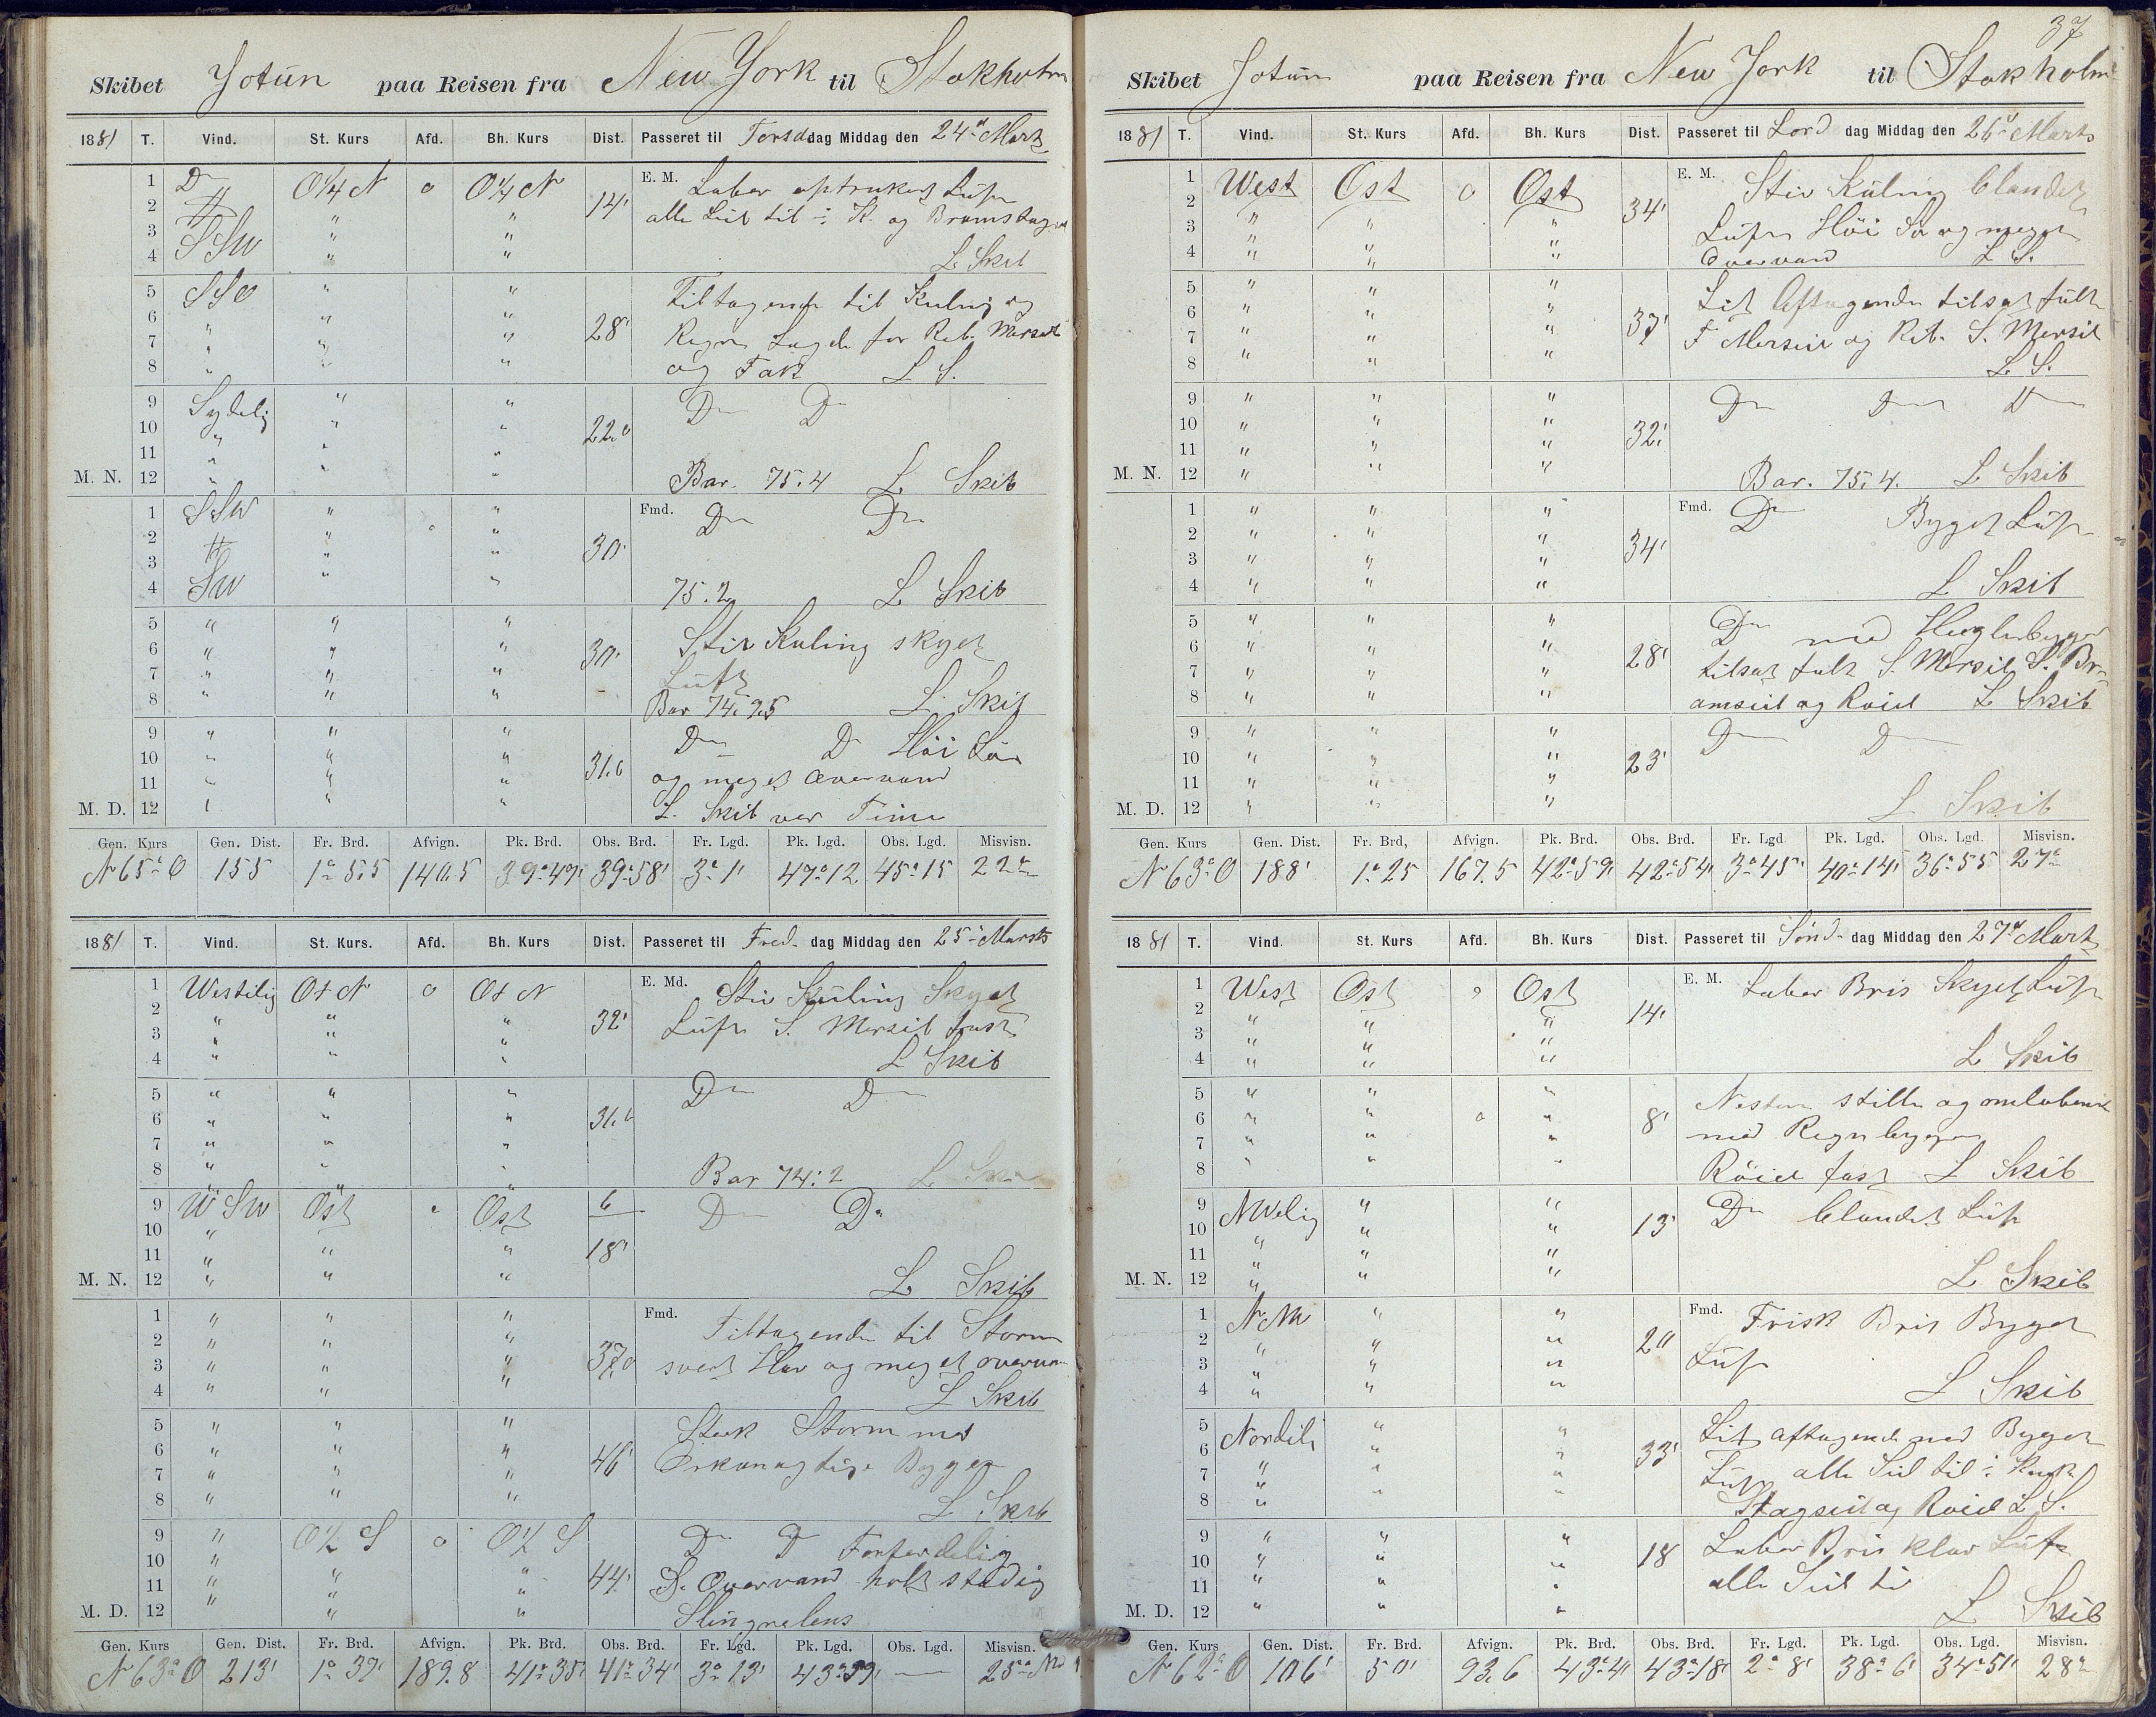 Skibet Jotun paa Reisen fra New York til Stokholm
1881 T. Vind. St. Kurs Afd. Bh. Kurs Dist. Passeret til Torsdadag Middag den 24d Marts
1 Do O¼N o O¼N E. M. Laber optrukket Luft
2 " " " 14' alle Seil til ÷ K. og Bramstags
3 SSW " "
4 " " L. Skib
5 SSO " " Tiltagende til Kuling og
6 " "
7 " " " 28' Regn Lagde for Reb. Mersseil
8 " " " og Fok L S.
9 Sydelig " " Do Do
10 " " 22.0
11 " " "
M. N. 12 " " " Bar. 75.4 L Skib
1 SSW " " Fmd. Do Do
2 " " o "
3 " " 30'
4 SW " " 75.2 L Skib
5 " " "
6 " " " 30' Stiv Kuling skyet
7 " " " Luft
8 " " " Bar 74.95 L. Skib
9 " " " Do Do Höi Sö
10 " " " 31.6 og meget Overvand
11 " " "
M. D. 12 " " " L. Skib ver Time
Gen. Kurs Gen. Dist. Fr. Brd. Afvign. Pk. Brd. Obs. Brd. Fr. Lgd. Pk. Lgd. Obs. Lgd. Misvisn.
N65°O 155 1°5.5 140.5 39°49' 39°58' 3°1' 47°12 45°15 22°
1881 T. Vind. St. Kurs. Afd. Bh. Kurs Dist. Passeret til Fred- dag Middag den 25d Marts
1 Westelig OtN o OtN E. Md. Stiv Kuling Skyet
2 " " " 32' Luft S. Mersseil fast
3 " " "
4 " " " L Skib
5 " " " Do Do
6 " " " 31.6
7 " " "
8 " " " Bar 74:2 L Skib
9 WSW Ost o Ost 6 Do Do
10 "
11 " " " 18'
M. N. 12 " " " L Skib
1 " " " Fmd. Tiltagende til Storm
2 " " "
3 " " " 37.0 svert Hav og meget overvan
4 " " " L Skib
5 " " " Sterk Storm med
6 " " " 46' Orkanagtige Byger
7 " " "
8 " " " L. Skib
9 " O½S o O½S Do Do Forferdelig
10 " " "
11 " " " 44' S. Overvand holt stadig
M. D. 12 " " " Slingrelens
Gen. Kurs Gen. Dist. Fr. Brd. Afvign. Pk. Brd. Obs. Brd. Fr. Lgd. Pk. Lgd. Obs. Lgd. Misvisn.
N63°O 213' 1°39' 189.8 41°35' 41°34' 3°13' 43°59' — 25°
37
Skibet Jotun paa Reisen fra New York til Stokholm
1881 T. Vind. St. Kurs Afd. Bh. Kurs Dist. Passeret til Lord dag Middag den 26d Marts
1 West Ost o Ost E. M. Stiv Kuling blandet
2 " " " 34'
3 " " " Luft Höi Sö og meget
4 " " " Overvand L S.
5 " " " Lit Aftagende tilsat fult
6 " " " 37'
7 " " " F Mersseil og Reb. S. Mersseil
8 " " " L S.
9 " " " Do Do Do
10 " " " 32'
11 " " "
M. N. 12 " " " Bar. 75.4. L Skib
1 " " " Fmd. Do Byget Luft
2 " " "
3 " " " 34'
4 " " " L Skib
5 " " " Do med Haglbyger
6 " " " 28'
7 " " " tilsat fult S. Mersseil S. Br-
8 " " " amseil og Röiel L Skib
9 " " " Do Do
10 " " " 23'
11 " " "
M. D. 12 " " " L Skib
Gen. Kurs Gen. Dist. Fr. Brd, Afvign. Pk. Brd. Obs. Brd. Fr. Lgd Pk. Lgd. Obs. Lgd. Misvisn.
N63°O 188' 1°25 167.5 42°59' 42°54' 3°45' 40°14' 36°55' 27°
1881 T. Vind. St. Kurs Afd. Bh. Kurs Dist. Passeret til Sönd- dag Middag den 27d Marts
1 West Ost o Ost E. M. Laber Bris Skyet Luft
2 " " " 14'
3 " " "
4 " " " L Skib
5 " " " Nesten stille og omlobende
6 " " o " 8'
7 " " " med Regnbyger
8 " " " Röiel fast L Skib
9 NWelig " " Do blandet Luft
10 " " 13'
11 " " "
M. N. 12 " " " L Skib
1 NNW " " Fmd. Frisk Bris Byget
2 " " " 20 Luft
3 " " "
4 " " " L Skib
5 Nordeli " " Lit aftagende med Byget
6 " " 33'
7 " " " Luft alle Seil til ÷
8 " " " Stagseil og Röiel L S.
9 " " " Laber Bris klar Luft
10 " " " 18
11 " " " alle Seil ti
M. D. 12 " " " L Skib
Gen. Kurs Gen. Dist. Fr. Brd. Afvign. Pk. Brd. Obs. Brd. Fr. Lgd. Pk. Lgd. Obs. Lgd. Misvisn.
N62°O 106' 50' 93.6 43°4' 43°18' 2°8' 38°6' 34°51' 28°